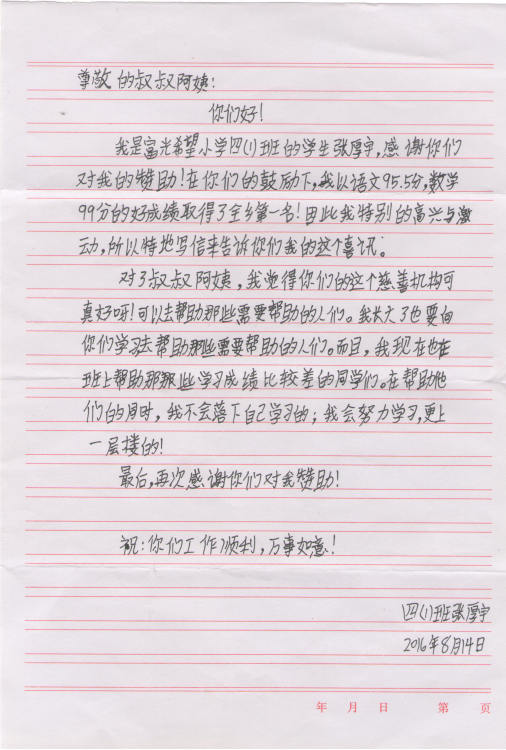 尊敬的叔叔阿姨：
你们好！
我是富光希望小学四(1)班的学生张厚宇，感谢你们
对我的赞助！在你们的鼓励下，我以语文95.5分，数学
99分的好成绩取得了全乡第一名！因此我特别的高兴与激
动，所以特地写信来告诉你们我的这个喜讯。
对了叔叔阿姨，我觉得你们的这个慈善机构可
真好呀！可以去帮助那些需要帮助的人们。我长大了也要向
你们学习去帮助那些需要帮助的人们。而且，我现在也在
班上帮助那那些学习成绩比较差的同学们。在帮助他
们的同时，我不会落下自己学习的；我会努力学习，更上
一层楼的！
最后，再次感谢你们对我赞助！
祝：你们工作顺利，万事如意！
四(1)班张厚宇
2016年8月14日
年 月 日 第 页